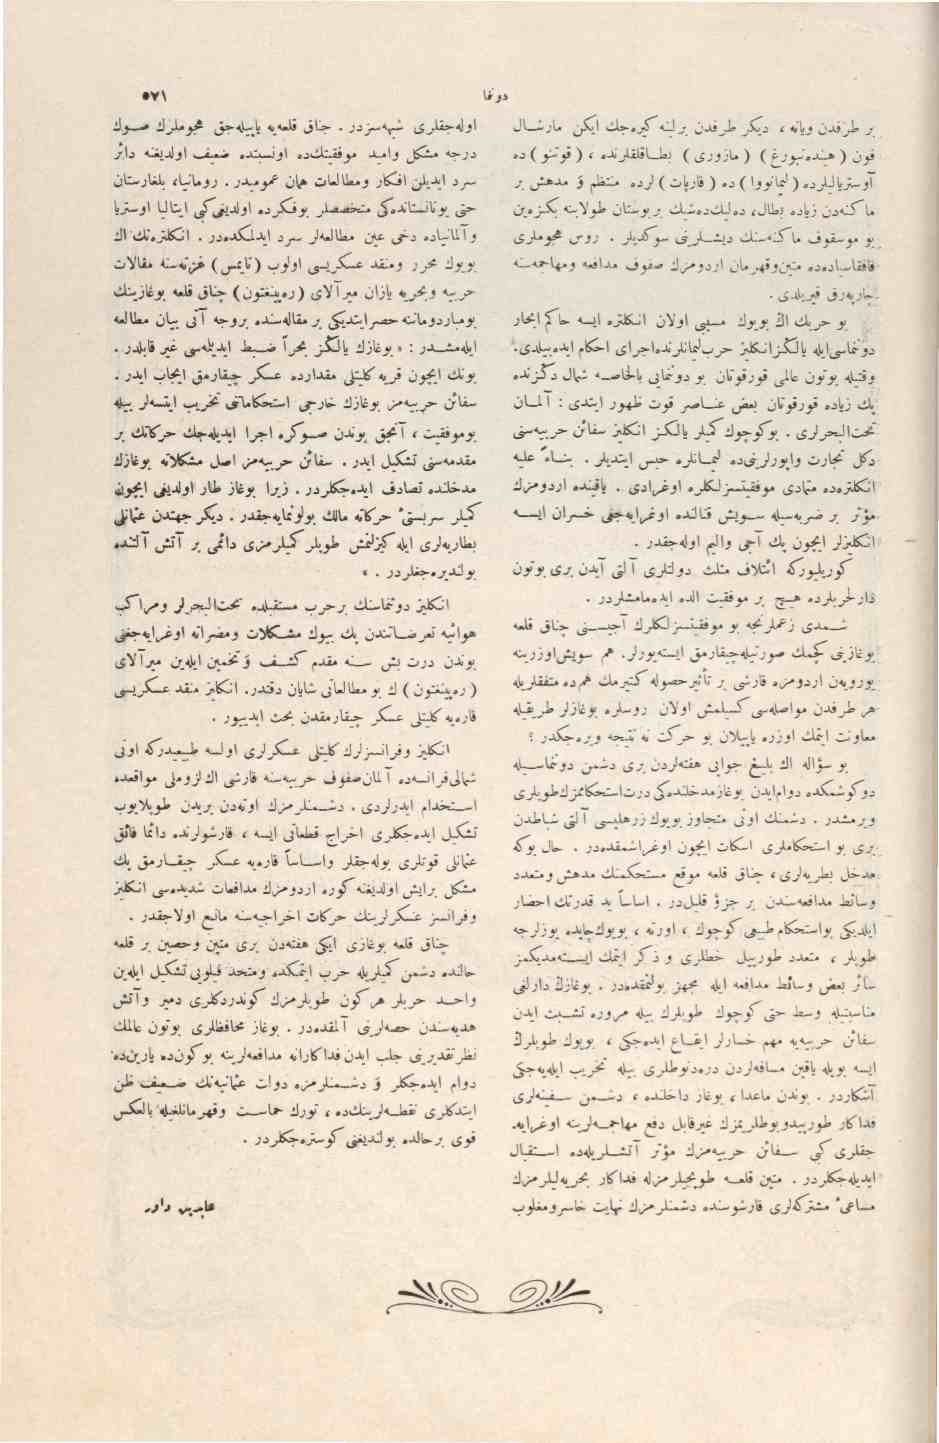 دونما
٥٧١
بر طرفدن ويانه ، ديكر طرفدن برلينه كيره جك ايكن مارشــال
فون ( هيندەنبورغ ) ( مازورى ) بطـاقلقلرنده ، ( قونسو ) ده
آوستريالیلرده ( ليمانووا ) ده ( قارپات ) لرده منتظم و مدهش بر
ماكنه‌دن زياده بطال، ده‌ليك‌ده‌شيك بر بوستان طولابنه بكزه‌ين
بو موسقوف ماكنه‌سنك ديشــلرينى سوكديلر . روس هجوملرى
قافقاسياده‌ده متين وقهرمان اردومزك صفوف مدافعه ومهاجمه‌سنه
چارپه‌رق قيريلدى .
بو حربك اك بويوك مسببى اولان انكلتره ايسه حاكم ابحار
دونماسى‌ايله يالكز انكليز حرب ليمانلرنده اجراى احكام ايده‌بيلدى.
وقتيله بوتون عالمى قورقوتان بو دونمايى بالخاصــه شمال دكزنده
پك زياده قورقوتان بعض عنــاصر قوت ظهور ايتدى : آلمــان
تحت‌البحرلرى . بو كوچوك كميلر يالكز انكليز سفائن حربيه‌سنى
دكل تجارت واپورلرينى‌ده ليمــانلره حبس ايتديلر . بنــاءً عليه
انكلتره‌ده متمادى موفقيتسزلكلره اوغرادى . ياقينده اردومزك
مؤثر بر ضربه‌سيله سويش قنالنده اوغرايه‌جغى خسران ايســه
انكليزلر ايچون پك آجى واليم اوله‌جقدر .
كوريليوركه ائتلاف مثلث دولتلرى آلتى آيدن برى بوتون
دارلحربلرده هيــچ بر موفقيت الده ايده‌مامشلردر .
شــمدى زعملرنجه بو موفقيتسزلكلرك آجيســنى چناق قلعه
بوغازينى كچمك صورتيله‌چيقارمق ايسته‌يورلر. هم سويش‌اوزرينه
يورويه‌ن اردومزه قارشى بر تأثير حصوله كتيرمك هم‌ده متفقلريله
هر طرفدن مواصله‌سى كسيلمش اولان روسلره بوغازلر طريقيله
معاونت ايتمك اوزره ياپيلان بو حركت نه نتيجه ويره‌جكدر ؟
بو سؤاله اك بليغ جوابى هفته‌لردن برى دشمن دونماســيله
دوكوشمكده دوام‌ايدن بوغازمدخلنده‌كى درت‌استحكاممزك‌طوپلرى
ويرمشدر . دشمنك اونى متجاوز بويوك زرهليسى آلتى شباطدن
برى بو استحكاملرى اسكات ايچون اوغراشمقده‌در . حال بوكه
مدخل بطريه‌لرى ، چناق قلعه موقع مستحكمنك مدهش ومتعدد
وسائط مدافعه‌سندن بر جزؤ قليل‌در . اساساً يد قدرتك احضار
ايلديكى بواستحكام طبيعى كوچوك ، اورته ، بويوك چاپده يوزلرجه
طوپلر ، متعدد طورپيل خطلرى و ذكر ايتمك ايســته‌مديكمز
سائر بعض وسائط مدافعه ايله مجهز بولنمقده‌در . بوغازك دارلغى
مناسبتيله وسط حتى كوچوك طوپلرك بيله مروره تشــبث ايدن
سفائن حربيه‌يه مهم خسارلر ايقــاع ايده‌جكى ، بويوك طوپلرك
ايسه بويله ياقين مسافه‌لردن دره‌دنوطلرى بيله تخريب ايليه‌جكى
آشكاردر . بوندن ماعدا ، بوغاز داخلنده ، دشــمن سفينه‌لرى
فداكار طورپيدوبوطلريمزك غيرقابل دفع مهاجمــه‌لرينه اوغرايه‌
جقلرى كبى ســفائن حربيه‌مزك مؤثر آتشــلريله‌ده اســتقبال
ايديله‌جكلردر . متين قلعــه طوپجيلرمزله فداكار بحريه‌ليلرمزك
مساعىٔ مشتركه‌لرى قارشوسنده دشمنلرمزك نهايت خاسر ومغلوب
اوله‌جقلرى شبهه‌سزدر . چناق قلعه‌يه ياپيله‌جق هجوملرك صــوك
درجه مشكل واميد موفقيتك‌ده اونسبتده ضعيف اولديغنه دائر
سرد ايديلن افكار ومطالعات همان عموميدر . رومانيا، بلغارستان
حتى يونانستانده‌كى متخصصلر بوفكرده اولديغى‌كبى ايتاليا اوستريا
وآلمانياده دخى عين مطالعه‌لر سرد ايدلمكده‌در . انكلتره‌نك اك
بويوك محرر ومنقد عسكريسى اولوب (تايمس) غزته‌سنه مقالات
حربيه وبحريه يازان ميرآلاى (ره‌پينغتون) چناق قلعه بوغازينك
بومباردومانه حصر ايتديكى بر مقاله‌سنده بروجه آتى بيان مطالعه
ايله‌مشــدر : « بوغازك يالكز بحراً ضــبط ايديلمه‌سى غير قابلدر .
بونك ايچون قريه كليتلى مقدارده عسكر چيقارمق ايجاب ايدر .
سفائن حربيه‌مز بوغازك خارجى استحكاماتنى تخريب ايتسه‌لر بيله
بوموفقيت ، آنجق بوندن صــوكره اجرا ايديله‌جك حركاتك بر
مقدمه‌سنى تشكيل ايدر . سفائن حربيه‌مز اصل مشكلاته بوغازك
مدخلنده تصادف ايده‌جكلردر . زيرا بوغاز طار اولديغى ايچون
كميلر سربستىٔ حركاته مالك بولونمايه‌جقدر . ديكر جهتدن عثمانلى
بطاريه‌لرى ايله كيزلنمش طوپلر كميلرمزى دائمى بر آتش آلتنده
بولنديره‌جغلردر . »
انكليز دونماسنك برحرب مستقبلده تحت‌البحرلر ومراكب
هوائيه تعرضــاتندن پك بيوك مشــكلات ومضراته اوغرايه‌جغنى
بوندن درت بش ســنه مقدم كشــف و تخمين ايله‌ين ميرآلاى
( ره‌پينغتون ) ك بو مطالعاتى شايان دقتدر. انكليز منقد عسكريسى
قاره‌يه كليتلى عسكر چيقارمقدن بحث ايدييور .
انكليز وفرانسزلرك كليتلى عسكرلرى اولسه طبيعيدركه اونى
شمالى فرانسه‌ده آلمان صفوف حربيه‌سنه قارشى اك‌لزوملى مواقعده
اســتخدام ايدرلردى . دشــمنلرمزك اوته‌دن بريدن طوپلايوب
تشكيل ايده‌جكلرى اخراج قطعاتى ايسه ، قارشولرنده دائما فائق
عثمانلى قوتلرى بوله‌جقلر واســاساً قاره‌يه عسكر چيقــارمق پك
مشكل برايش اولديغنه كوره اردومزك مدافعات شديده‌سى انكليز
وفرانسز عسكرلرينك حركات اخراجيه‌سنه مانع اولاجقدر .
چناق قلعه بوغازى ايكى هفته‌دن برى متين وحصين بر قلعه
حالنده دشمن كميلريله حرب ايتمكده ومتحد فيلويى تشكيل ايله‌ين
واحــد حربلر هر كون طوپلرمزك كوندردكلرى دمير وآتش
هديه‌سندن حصه‌لرينى آلمقده‌در . بوغاز محافظلرى بوتون عالمك
نظر تقديرينى جلب ايدن فداكارانه مدافعه‌لرينه بو كون‌ده يارين‌ده
دوام ايده‌جكلر و دشــمنلرمزه دولت عثمانيه‌نك ضــعيف ظن
ايتدكلرى نقطــه‌لرينك‌ده ، تورك حماســت وقهرمانلغيله بالعكس
قوى برحالده بولنديغنى كوستره‌جكلردر .
عابدين داور